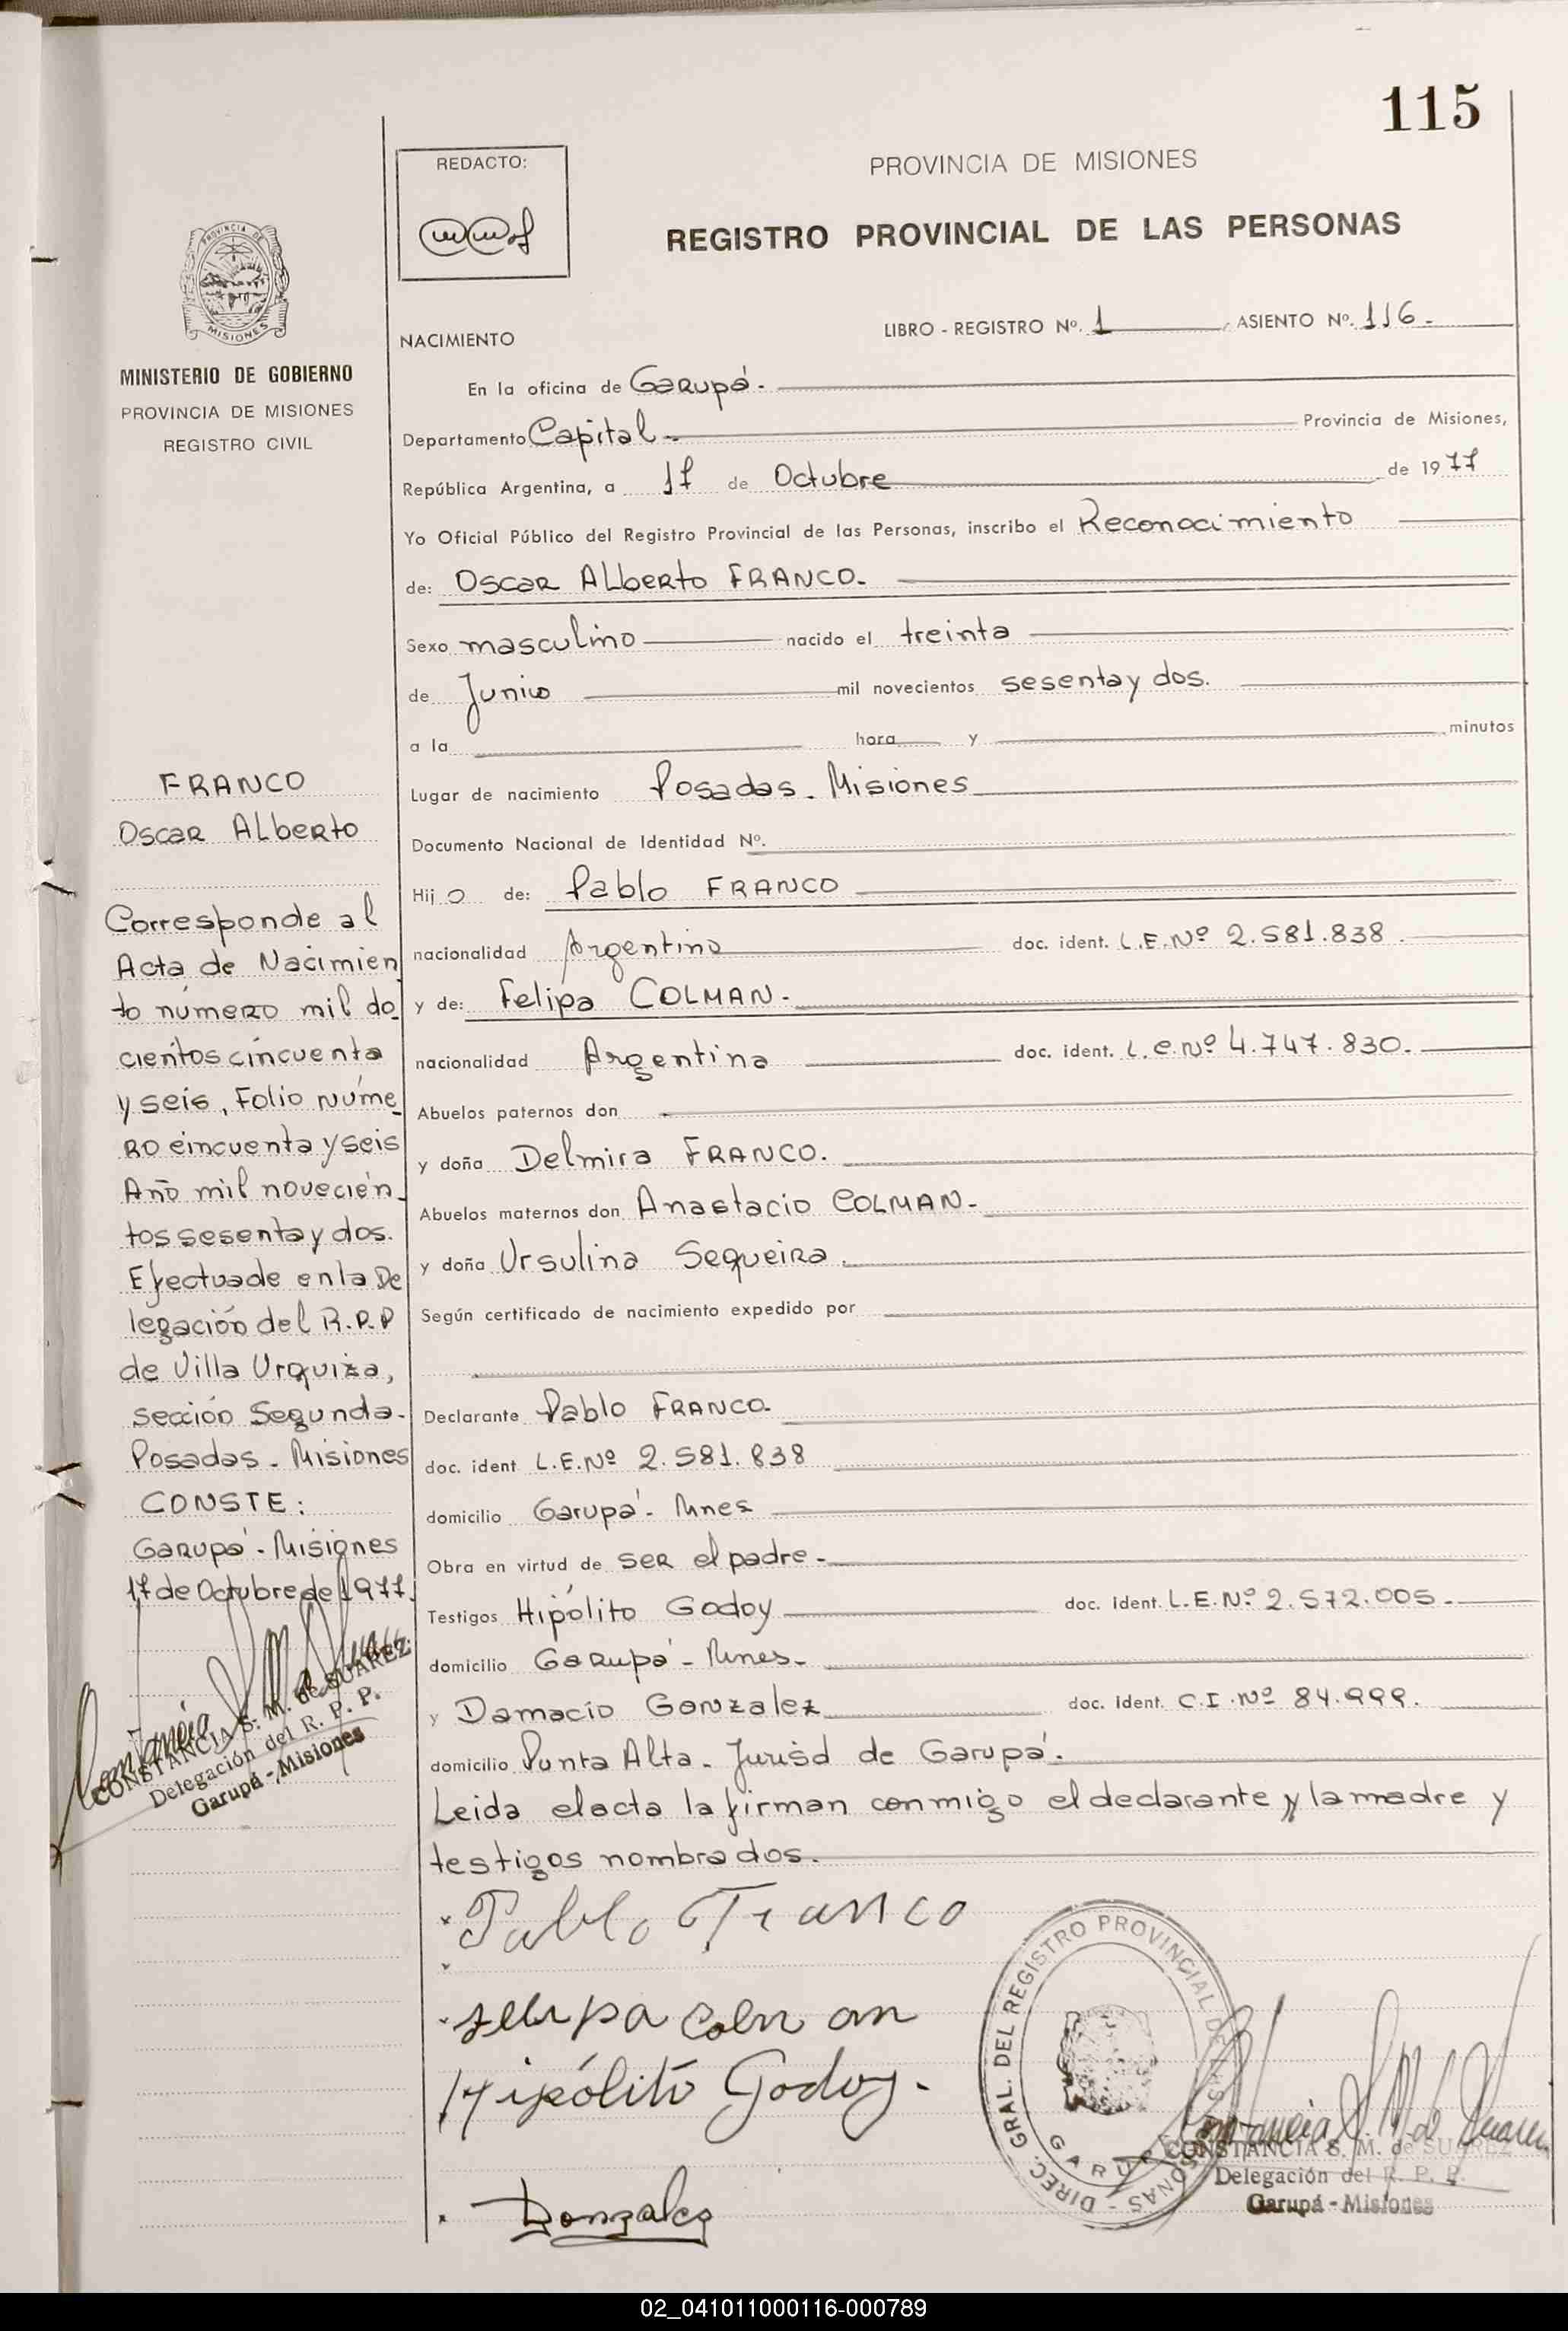 115
REDACTO:
PROVINCIA DE MISIONES
REGISTRO PROVINCIAL DE LAS PERSONAS
PROVINCIA DE
MISIONES
MINISTERIO DE GOBIERNO
PROVINCIA DE MISIONES
REGISTRO CIVIL
NACIMIENTO
LIBRO - REGISTRO Nº. 1 ASIENTO Nº. 116.-
En la oficina de Garupá.-
Departamento Capital.- Provincia de Misiones,
República Argentina, a 17 de Octubre de 1977
Yo Oficial Público del Registro Provincial de las Personas, inscribo el Reconocimiento
de: Oscar Alberto FRANCO.-
Sexo masculino nacido el treinta
de Junio mil novecientos sesenta y dos.
a la hora y minutos
Lugar de nacimiento Posadas - Misiones
Documento Nacional de Identidad Nº.
Hijo de: Pablo FRANCO
nacionalidad Argentino doc. ident. L.E.Nº 2.581.838
y de: Felipa COLMAN.-
nacionalidad Argentina doc. ident. L.C.Nº 4.747.830.-
Abuelos paternos don
y doña Delmira FRANCO.
Abuelos maternos don Anastacio COLMAN.-
y doña Ursulina Sequeira.
Según certificado de nacimiento expedido por
Declarante Pablo FRANCO.
doc. ident L.E.Nº 2.581.838
domicilio Garupá - Mnes
Obra en virtud de ser el padre.-
Testigos Hipólito Godoy doc. ident. L.E.Nº 2.572.005.-
domicilio Garupá - Mnes.-
y Damacio Gonzalez doc. ident. C.I.Nº 84.999.
domicilio Punta Alta - Jurisd de Garupá.
Leida el acta la firman conmigo el declarante y la madre y
testigos nombrados.
FRANCO
Oscar Alberto
Corresponde al
Acta de Nacimien
to número mil do
cientos cincuenta
y seis, Folio núme
ro cincuenta y seis
Año mil novecien
tos sesenta y dos.
Efectuade en la De
legación del R.P.P
de Villa Urquiza,
sección Segunda-
Posadas - Misiones
CONSTE:
Garupá - Misiones
17 de Octubre de 1977.
CONSTANCIA S. M. de SUAREZ
Delegación del R. P. P.
Garupá - Misiones
Pablo Franco
felipa colm an
Hipólito Godoy.
Gonzalez
DIREC. GRAL. DEL REGISTRO PROVINCIAL DE LAS PERSONAS -
GARUPA
Constancia S M de Suarez
CONSTANCIA S. M. de SUAREZ
Delegación del R. P. P.
Garupá - Misiones
02_041011000116-000789